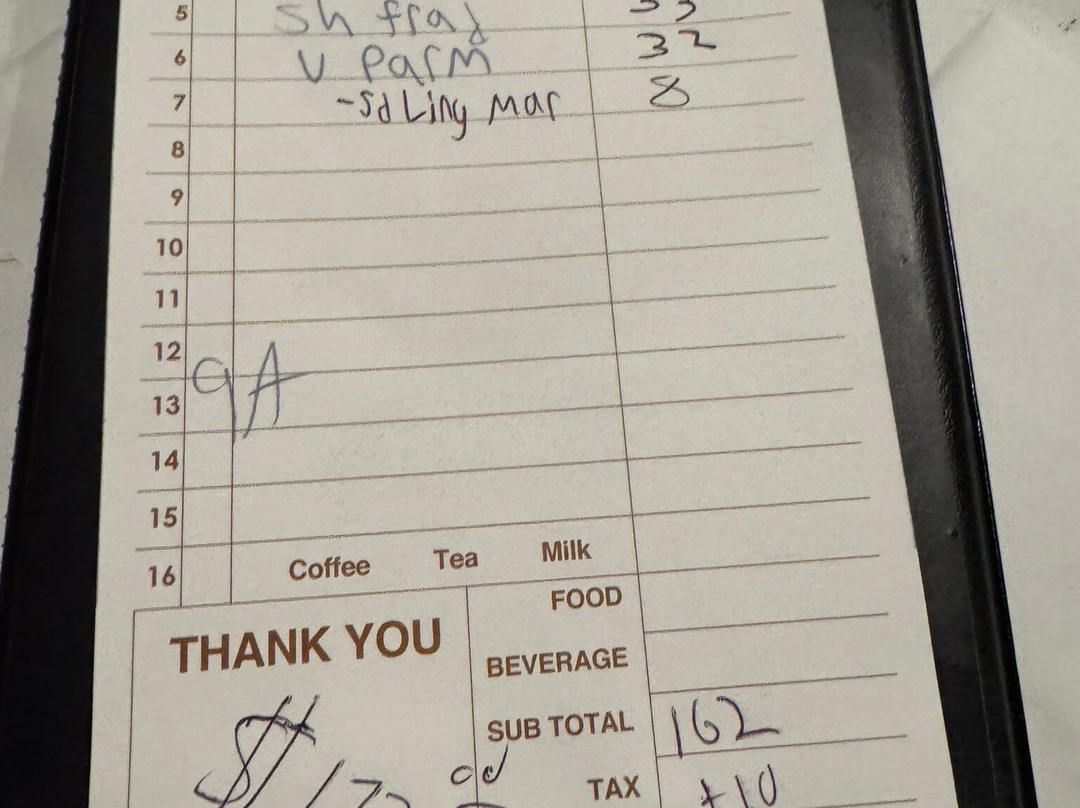 5 Sh fra
6 V Parm 32
7 -Sd Ling Mar 8
8
9
10
11
12
9A
13
14
15
16 Coffee Tea Milk
FOOD
THANK YOU
BEVERAGE
SUB TOTAL 162
TAX +10
$